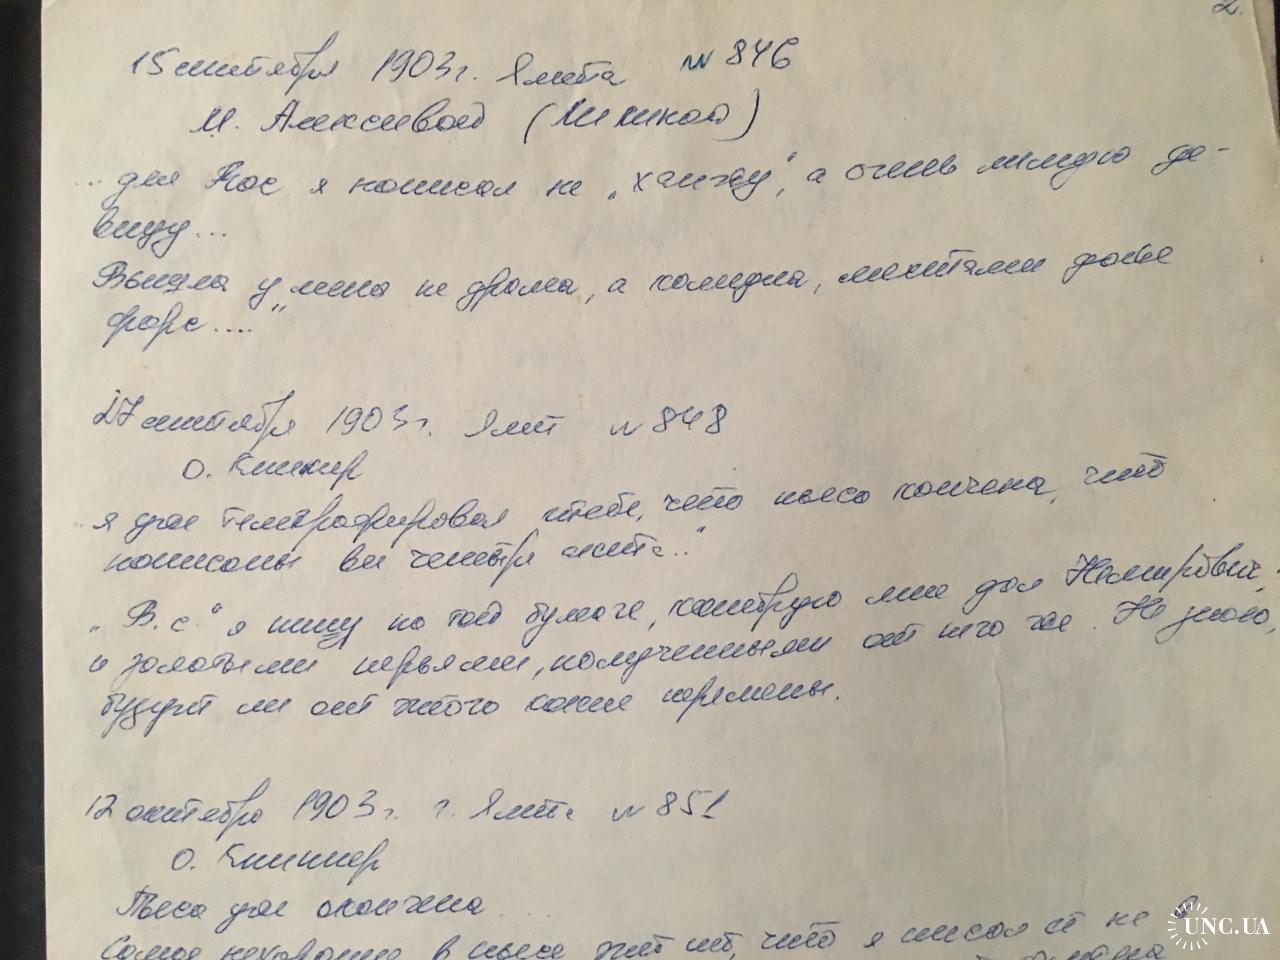 2.
15 сентября 1903 г. Ялта № 846
М. Алексеевой (Лилиной)
... для Вас я написал не „ханжу", а очень милую де-
вицу...
Вышла у меня не драма, а комедия, местами даже
фарс...."
27 сентября 1903 г. Ялта № 848
О. Книппер
... я уже телеграфировал тебе, что пьеса кончена, что
написаны все четыре акта..."
„В.с." я пишу на той бумаге, которую мне дал Немирович,
и золотыми перьями, полученными от него же. Не знаю,
будут ли от этого какие перемены.
12 октября 1903 г. г. Ялта № 851
О. Книппер
Пьеса уже окончена
Самое нехорошее в пьесе это то, что я писал её не в
UNC.UA